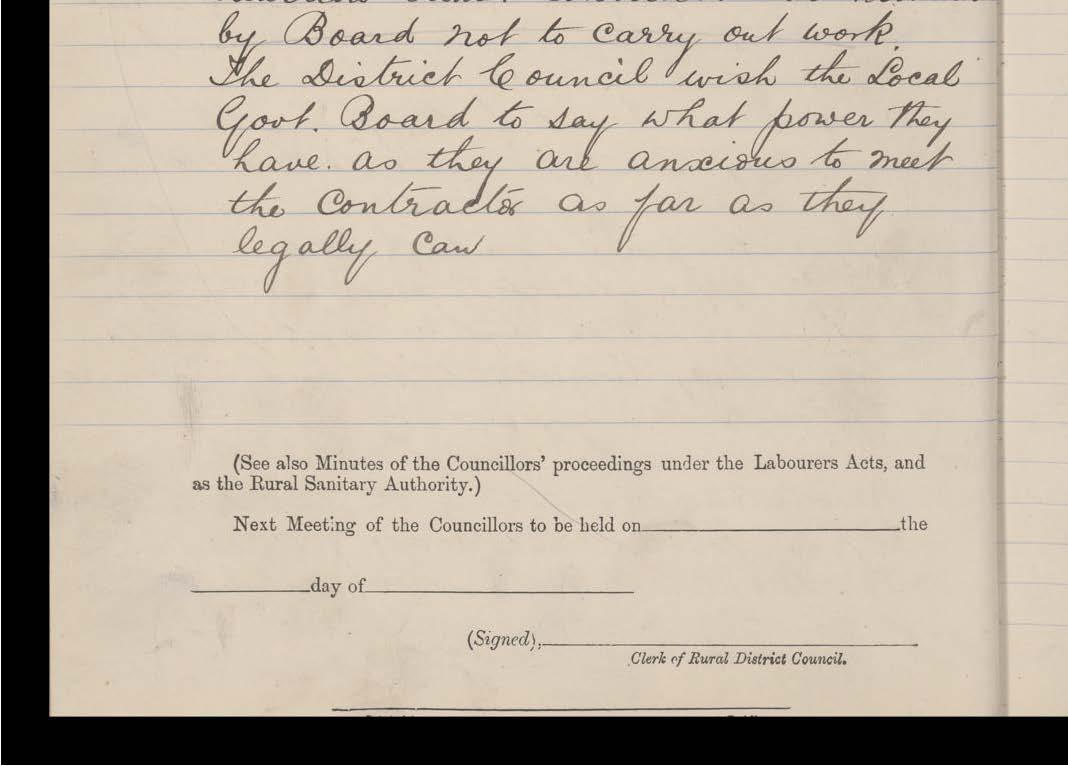 by Board not to carry out work.
The District Council wish the Local
Govt. Board to say what power they
have. as they are anxious to meet
the Contractor as far as they
legally can
(See also Minutes of the Councillors' proceedings under the Labourers Acts, and
as the Rural Sanitary Authority.)
Next Meeting of the Councillors to be held on the
day of
(Signed),
Clerk of Rural District Council.